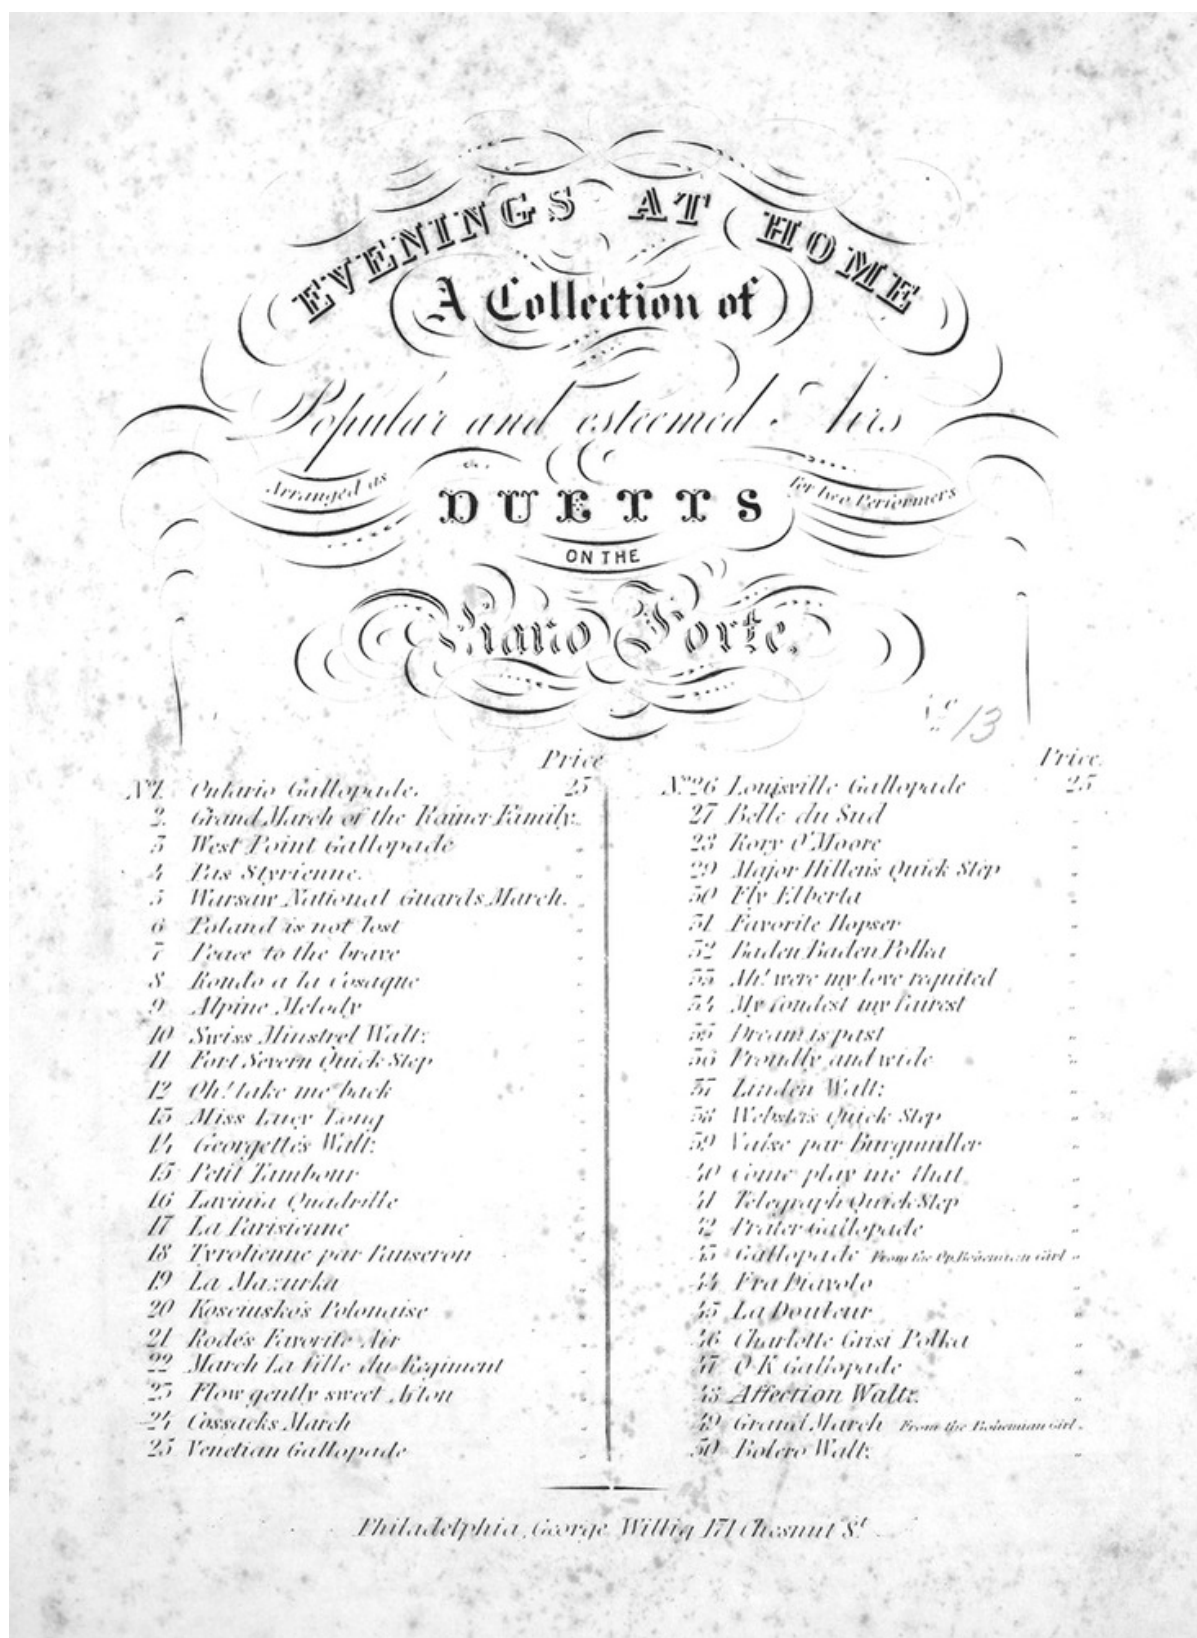 EVENINGS AT HOME
A Collection of
Popular and esteemed Airs
Arranged as
DUETTS
For two Performers
ON THE
Piano Forte.
No. 13
Price
No. 1. Ontario Gallopade. 25
2. Grand March of the Rainer Family. "
3 West Point Gallopade "
4 Pas Styrienne. "
5 Warsaw National Guards March. "
6 Poland is not lost "
7 Peace to the brave "
8 Rondo a la Cosaque "
9 Alpine Melody "
10 Swiss Minstrel Waltz "
11 Fort Severn Quick Step "
12 Oh! take me back "
13 Miss Lucy Long "
14 Georgette's Waltz "
15 Petit Tambour "
16 Lavinia Quadrille "
17 La Parisienne "
18 Tyrolienne par Panseron "
19 La Mazurka "
20 Kosciusko's Polonaise "
21 Rode's Favorite Air "
22 March La fille du Regiment "
23 Flow gently sweet Afton "
24 Cossacks March "
25 Venetian Gallopade "
Price.
No. 26 Louisville Gallopade 25
27 Belle du Sud "
28 Rory O'Moore "
29 Major Hillen's Quick Step "
30 Fly Elberta "
31 Favorite Hopser "
32 Baden Baden Polka "
33 Ah! were my love requited "
34 My fondest my fairest "
35 Dream is past "
36 Proudly and wide "
37 Linden Waltz "
38 Webster's Quick Step "
39 Valse par Burgmuller "
40 Come play me that "
41 Telegraph Quick Step "
42 Prater Gallopade "
43 Gallopade From the Op. Bohemian Girl "
44 Fra Diavolo "
45 La Douleur "
46 Charlotte Grisi Polka "
47 O K Gallopade "
48 Affection Waltz. "
49 Grand March From the Bohemian Girl. "
50 Bolero Waltz "
Philadelphia, George Willig 171 Chesnut St.